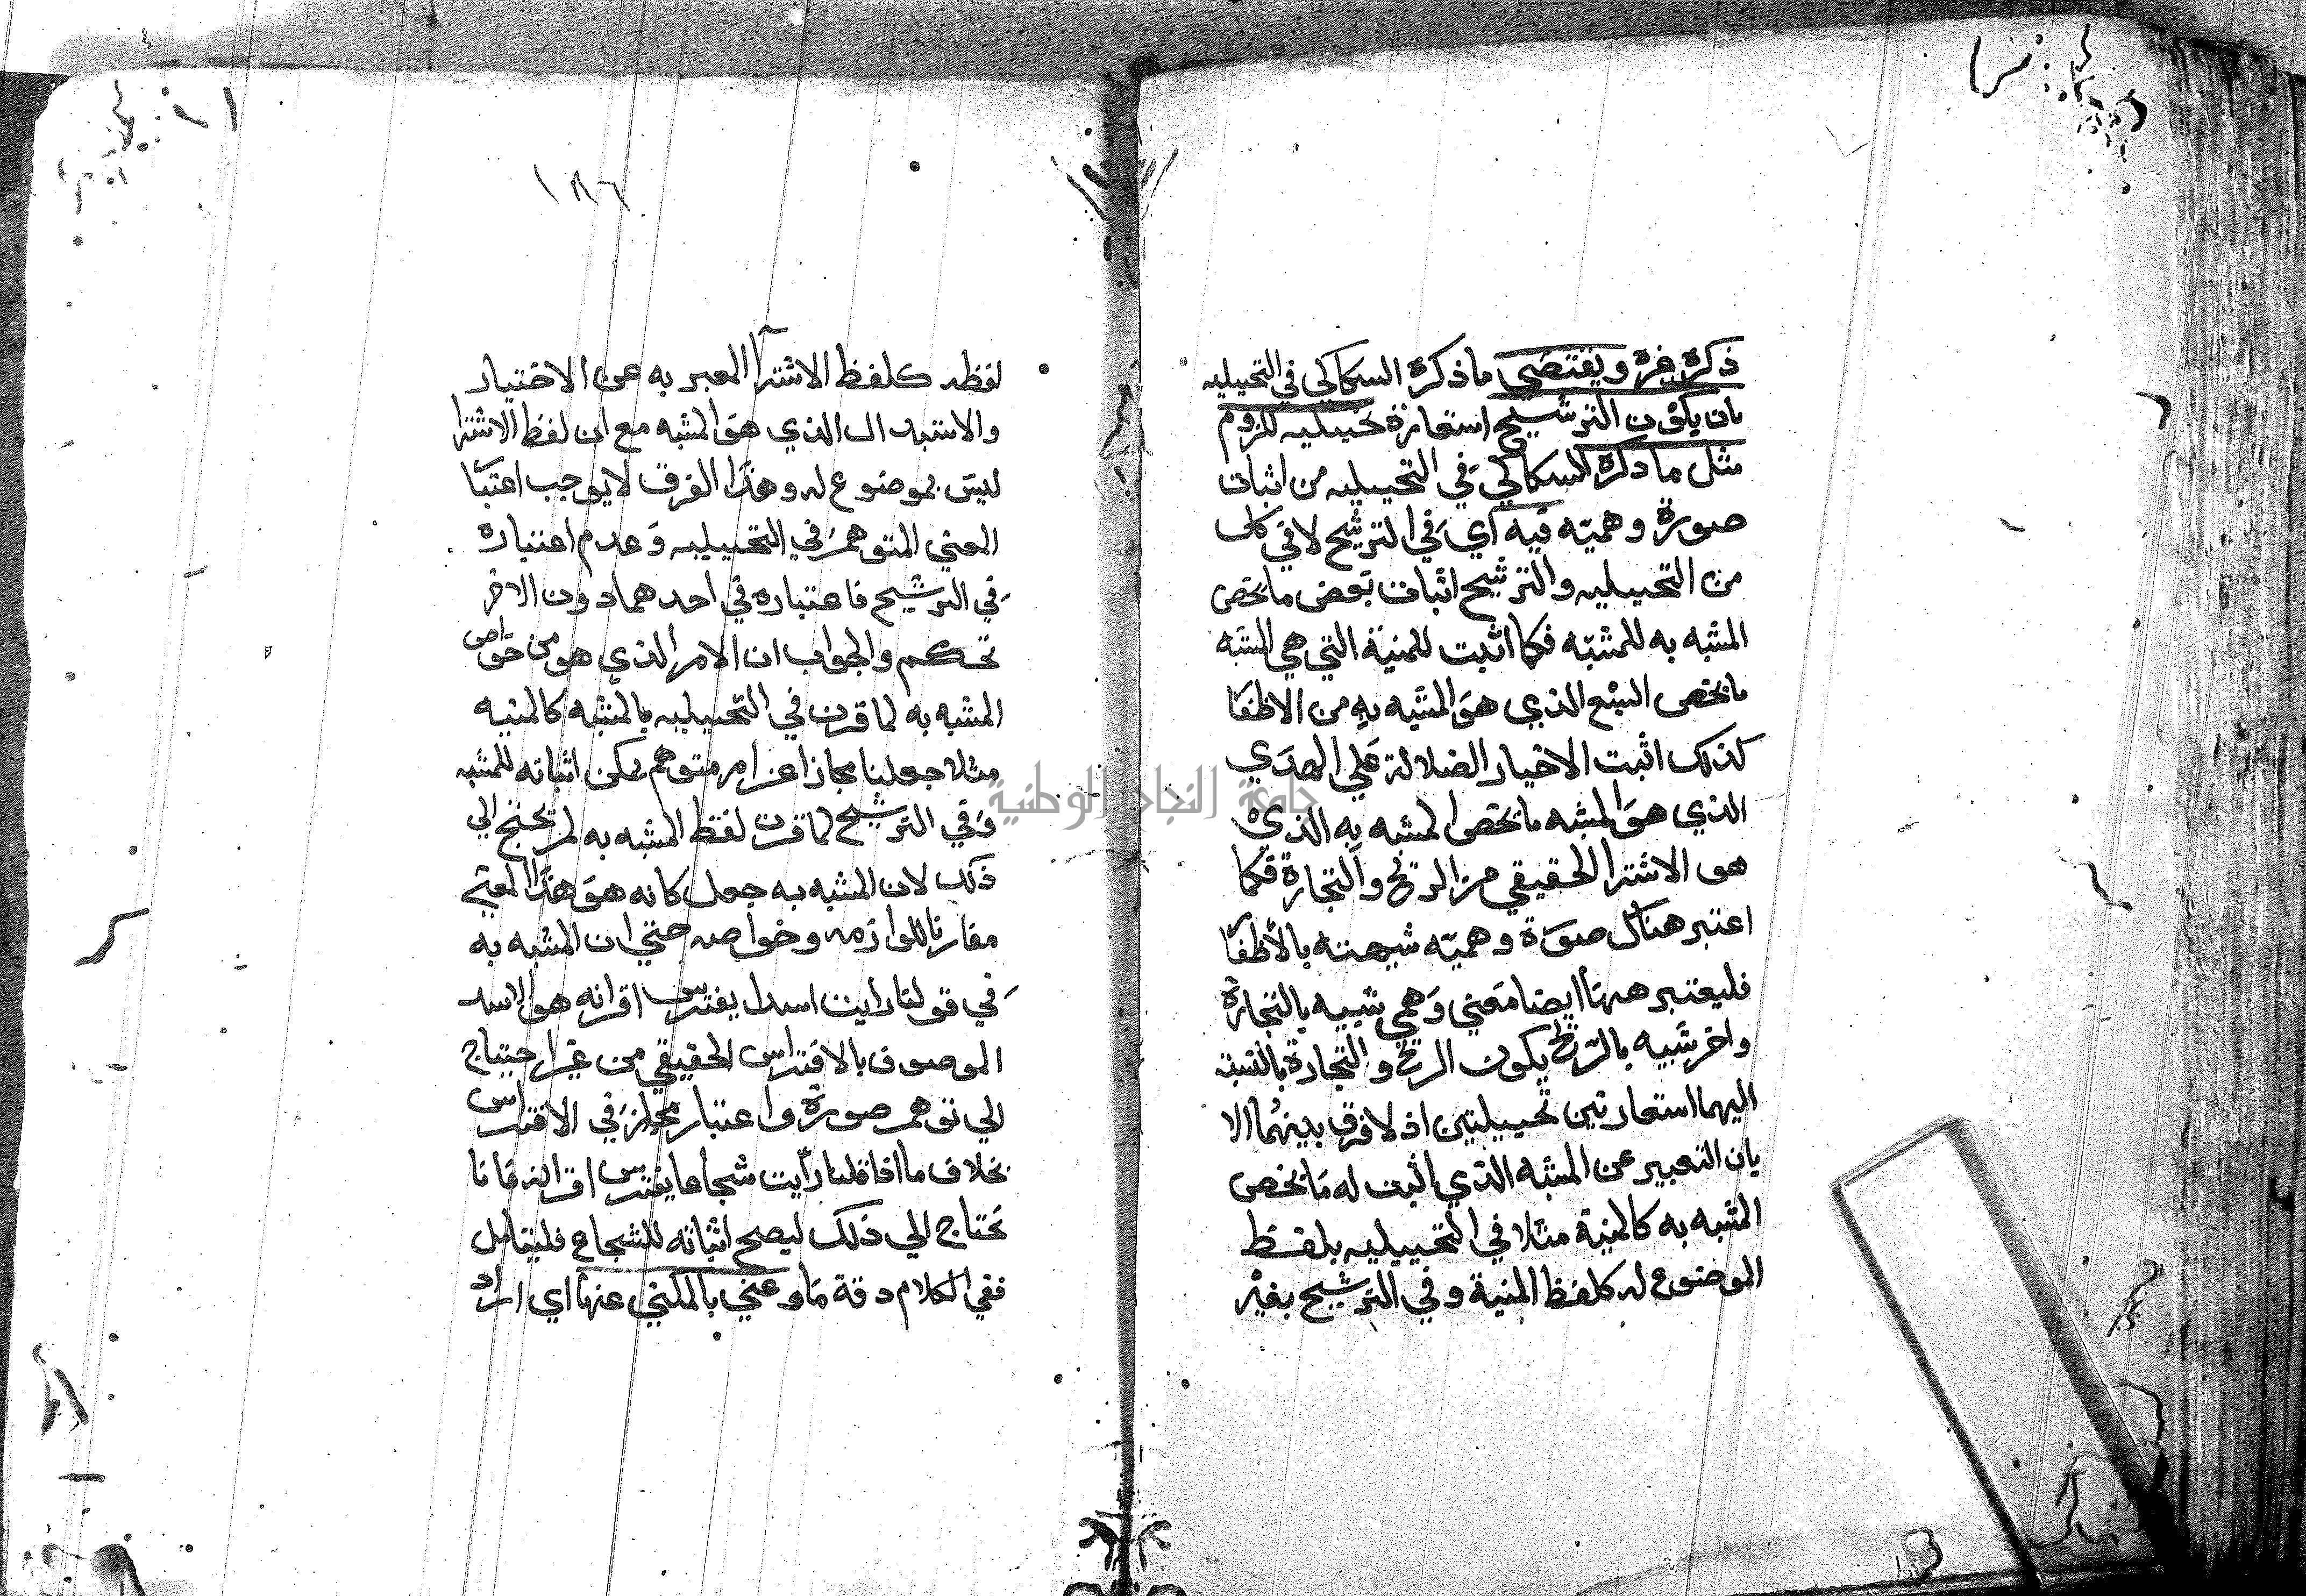 ذكره غيره ويقتضي ما ذكره السكاكي في التخييلية
بان يكون الترشيح استعارة تخييليه للزوم
مثل ما ذكره السكاكي في التخييليه من اثبات
صورة وهميه فيه اي في الترشيح لان في كل
من التخييليه والترشيح اثبات بعض ما يختص
المشبه به للمشبه فكما اثبت للمنية التي هي المشبه
ما يخص السبع الذي هو المشبه به من الاظفا
كذلك اثبت الاختيار الضلالة علي الهدي
الذي هو المشبه ما يختص المشبه به الذي
هو الاشترا الحقيقي من الربح والتجارة فكما
اعتبر هنالك صورة وهميه شبيهته بالأظفا
فليعتبر ههنا ايضا معني وهمي شبيه بالتجارة
واخر شبيه بالربح يكون الربح والتجارة بالنسبة
اليهما استعارتين تخييليتين اذ لا فرق بينهما الا
بان التعبير عن المشبه الذي اثبت له ما يخص
المشبه به كالمنية مثلا في التخييليه بلفظ
الموضوع له كلفظ المنية وفي الترشيح بغير
١٨٦
لفظه كلفظ الاشترآ المعبر به عن الاختيار
والاستبدال الذي هو المشبه مع ان لفظ الاشترا
ليس بموضوع له وهذا الفرق لا يوجب اعتبا
المعني المتوهم في التخييليه وعدم اعتباره
في الترشيح فاعتباره في احدهما دون الاخر
تحكم والجواب ان الامر الذي هو من خواص
المشبه به لما قرن في التخييليه بالمشبه كالمنيه
مثلا جعلنا مجازا عن امر متوهم يمكن اثباته للمشبه
وفي الترشيح لما قرن لفظ المشبه به لم يحتج الي
ذلك لان المشبه به جعل كانه هو هذا المعني
مقارنا للوازمه وخواصه حتي ان المشبه به
في قولنا رايت اسدا يفترس اقرانه هو الاسد
الموصوف بالافتراس الحقيقي من غير احتياج
الي توهم صورة واعتبار مجاز في الافتراس
بخلاف ما اذا قلنا رايت شجاعا يفترس اقرانه فانا
نحتاج الي ذلك ليصح اثباته للشجاع فليتامل
ففي الكلام دقة ما وعني بالمكني عنها اي اراد